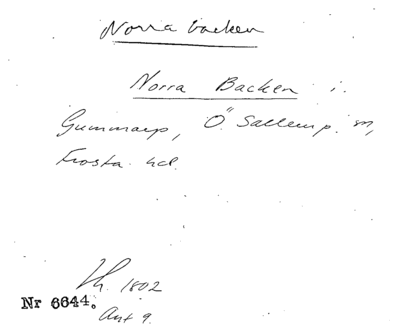 Norra backen
Norra Backen i
Gummarp, Ö. Sallerup sn,
Frosta hd.
Lh. 1802
Nr 6644.
Akt 9.